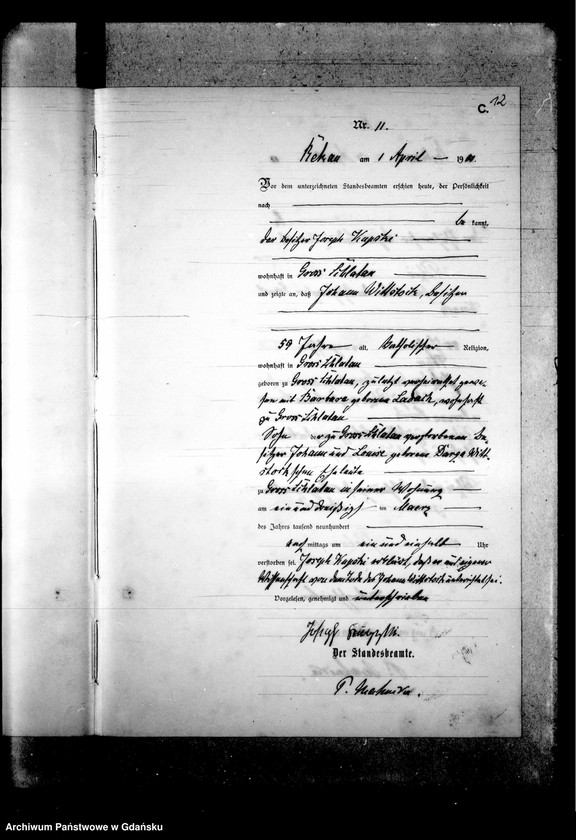 C. 12
Nr. 11.
Rekau am 1 April 19
Vor dem unterzeichneten Standesbeamten erschien heute, der Persönlichkeit
nach
be kannt,
der Besitzer Joseph Kapski
wohnhaft in Gross Schlatau
und zeigte an, daß Johann Wittstock, Besitzer
59 Jahre alt, katholischer Religion,
wohnhaft in Gross Schlatau
geboren zu Gross Schlatau, zuletzt verheirathet gewe-
sen mit Barbara geborene wohnhaft
zu Gross Schlatau
Sohn der zu Gross Schlatau verstorbenen Be-
sitzer Johann und Louise geborene Darga Witt-
stock'schen Eheleute
zu Gross Schlatau in seiner Wohnung
am ein und dreißigsten Maerz
des Jahres tausend neunhundert
nach mittags um ein und einhalb Uhr
verstorben sei. Joseph Kapski erklärt, daß er aus eigener
Wissenschaft von dem Tode des Johann Wittstock unterrichtet sei.
Vorgelesen, genehmigt und unterschrieben
Joseph
Der Standesbeamte.
Archiwum Państwowe w Gdańsku